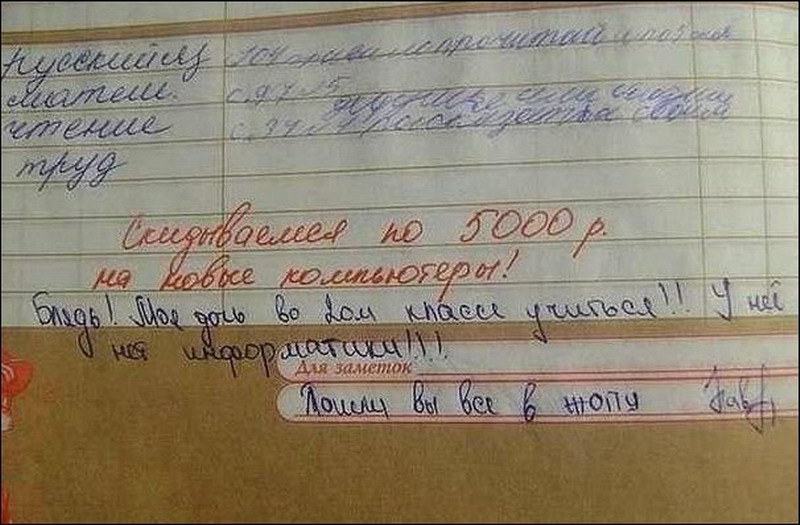 Русский яз 104 прочитай и
матем. с.97 №5
чтение с.34
труд
Скидываемся по 5000 р.
на новые компьютеры!
Блядь! Моя дочь во 2ом классе учиться!!! У неё
нет информатики!!!!
Для заметок
Пошли вы все в жопу